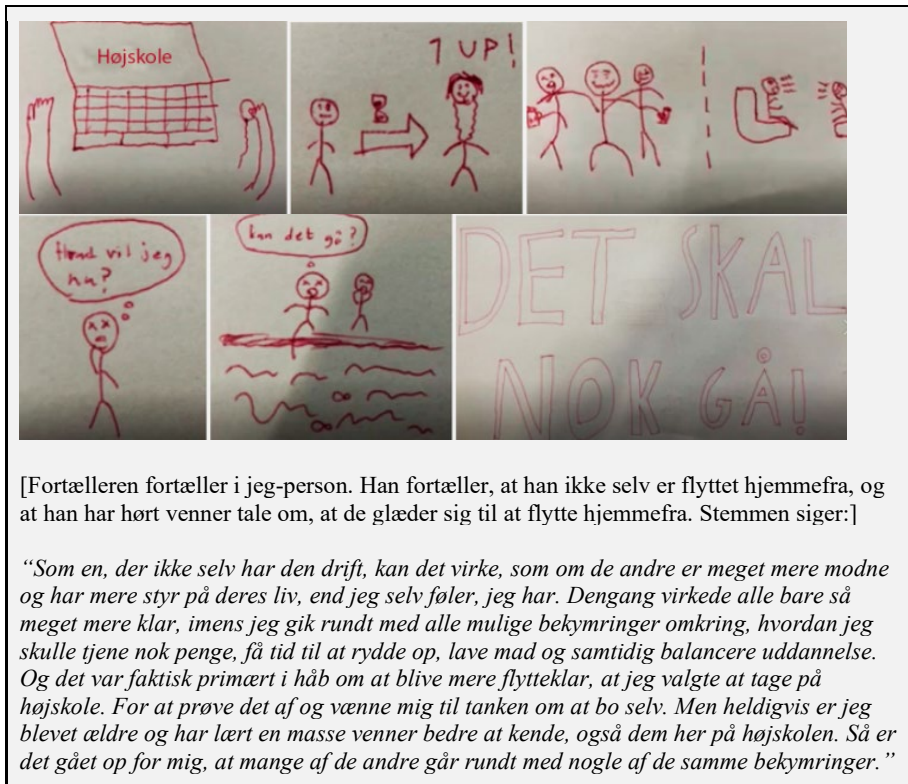 Højskole
1 UP!
Hvad vil jeg
nu?
kan det gå?
DET SKAL
NOK GÅ!
[Fortælleren fortæller i jeg-person. Han fortæller, at han ikke selv er flyttet hjemmefra, og
at han har hørt venner tale om, at de glæder sig til at flytte hjemmefra. Stemmen siger:]
“Som en, der ikke selv har den drift, kan det virke, som om de andre er meget mere modne
og har mere styr på deres liv, end jeg selv føler, jeg har. Dengang virkede alle bare så
meget mere klar, imens jeg gik rundt med alle mulige bekymringer omkring, hvordan jeg
skulle tjene nok penge, få tid til at rydde op, lave mad og samtidig balancere uddannelse.
Og det var faktisk primært i håb om at blive mere flytteklar, at jeg valgte at tage på
højskole. For at prøve det af og vænne mig til tanken om at bo selv. Men heldigvis er jeg
blevet ældre og har lært en masse venner bedre at kende, også dem her på højskolen. Så er
det gået op for mig, at mange af de andre går rundt med nogle af de samme bekymringer.”